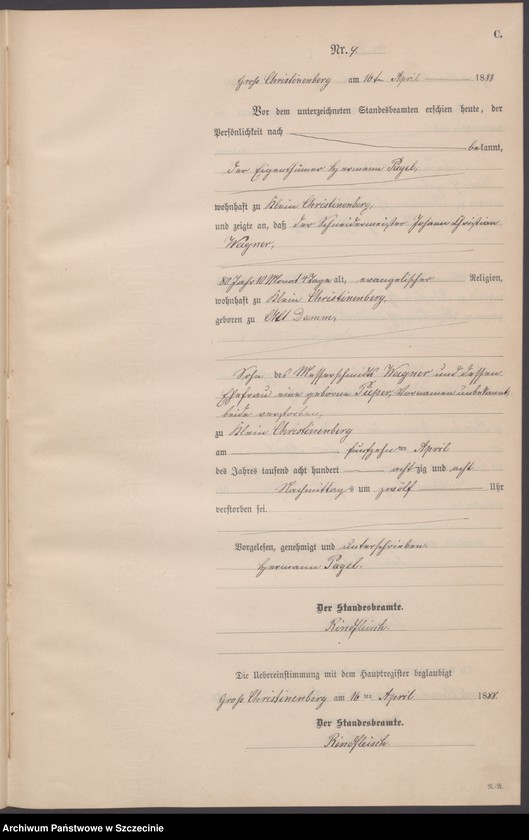 C.
Nr. 4
Groß Christinenberg am 16ten April 1888
Vor dem unterzeichneten Standesbeamten erschien heute, der
Persönlichkeit nach
bekannt,
der Eigenthümer Hermann Pagel,
wohnhaft zu Klein Christinenberg,
und zeigte an, daß der Schneidermeister Johann Christian
Wagner,
80 Jahr 10 Monat 4 Tage alt, evangelischer Religion,
wohnhaft zu Klein Christinenberg,
geboren zu Alt Damm,
Sohn des Messerschmidts Wagner und dessen
Ehefrau eine geborne, Vornamen unbekannt,
beide verstorben,
zu Klein Christinenberg
am fünfzehn ten April
des Jahrs tausend acht hundert achtzig und acht
Nachmittags um zwölf Uhr
verstorben sei.
Vorgelesen, genehmigt und unterschrieben
Hermann Pagel.
Der Standesbeamte.
Rindfleisch.
Die Uebereinstimmung mit dem Hauptregister beglaubigt
Groß Christinenberg am 16ten April 1888.
Der Standesbeamte.
Rindfleisch
Archiwum Państwowe w Szczecinie